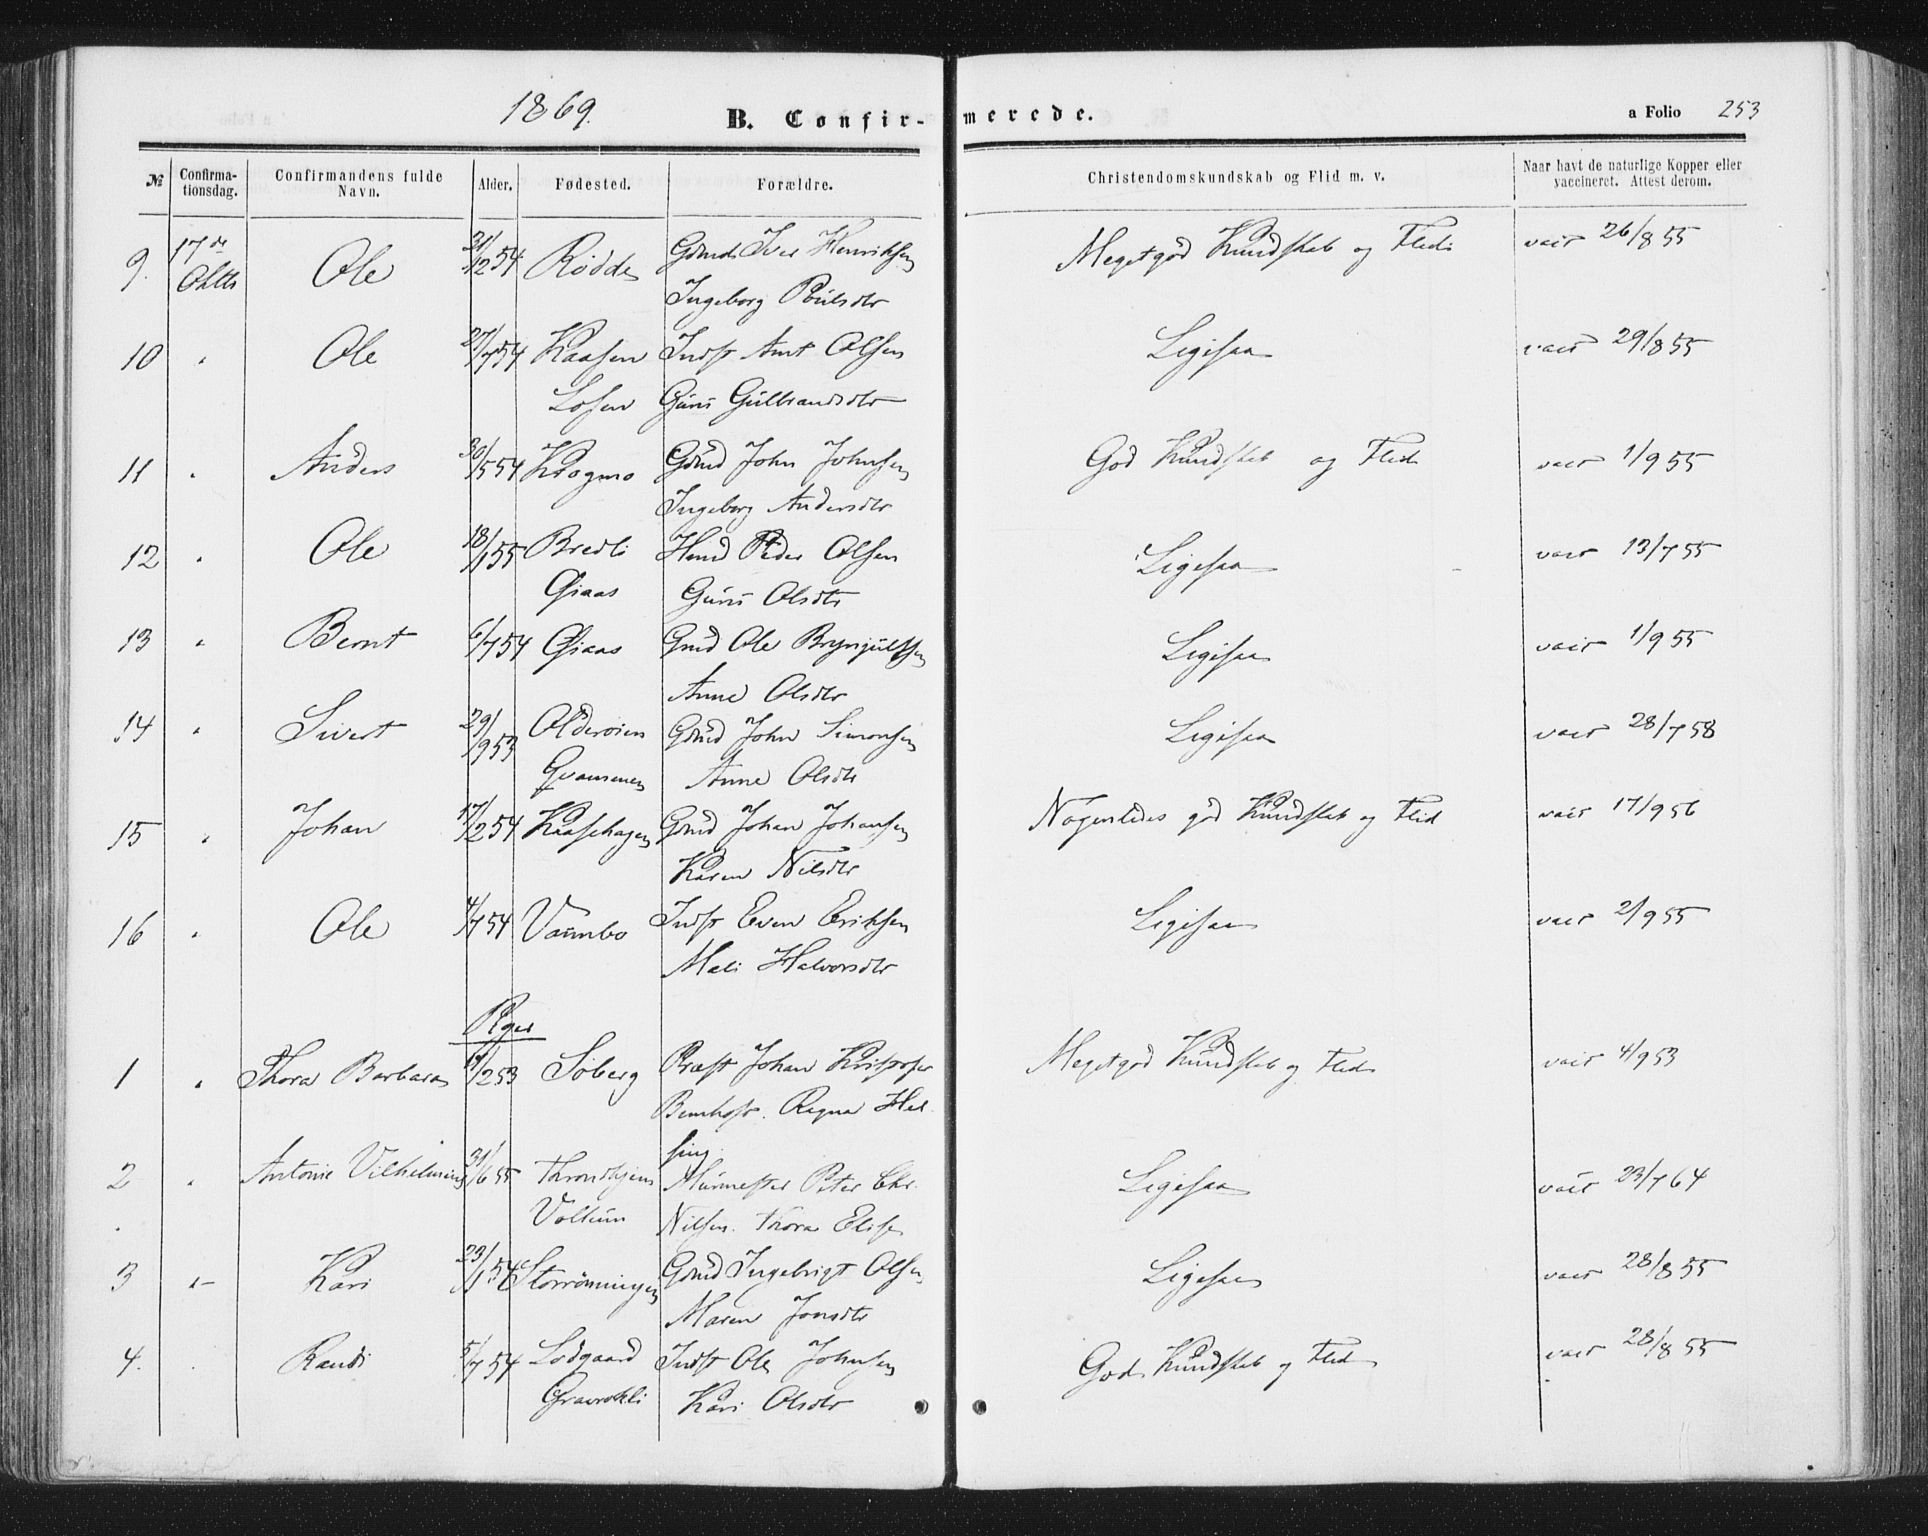 1869.
B. Confirmerede.
a Folio 253
№ Confirmationsdag. Confirmandens fulde Navn. Alder. Fødested. Forældre. Christendomskundskab og Flid m. v. Naar havt de naturlige Kopper eller vaccineret. Attest derom.
9. 17de Oktbr Ole 21/12 54 Rødde Gdmd Iver Henriksen Megetgod Kundskab og Flid vacc 26/8 55
Ingeborg Poulsdtr
10 " Ole 27/7 54 Kaasen Indst Arnt Olsen Ligesaa vacc 29/8 55
Losen Guru Gulbrandsdtr
11 " Anders 30/5 54 Krogmo Gdmd John Johnsen God Kundskab og Flid vacc 1/9 55
Ingeborg Andersdtr
12 " Ole 18/1 55 Bredli Hmd Peder Olsen Ligesaa vacc 13/7 55
Giaas Guru Olsdtr
13 " Bernt 6/7 54 Giaas Gmd Ole Brynjulfsen Ligesaa vacc 1/9 55
Anne Olsdtr
14 " Sivert 29/9 53 Olderøien Gdmd John Simonsen Ligesaa vacc 28/7 58
Anne Olsdtr
15 " Johan 17/2 54 Kaasehagen Gdmd Johan Johansen Nogenledes god Kundskab og Flid vacc 17/9 56
Karen Nilsdtr
16 " Ole 4/7 54 Vaumbo Indst Even Eriksen Ligesaa vacc 2/9 55
Mali Halvorsdtr
Pger
1 " Thora Barbara 19/2 53 Søberg Præst Johan Kristofer Megetgod Kundskab og Flid vacc 4/9 53
Ragna Hel-
sing.
2 " Antonie Vilhelmine 31/6 55 Throndhjem Peter Chr. Ligesaa vacc 23/7 64
Nilsen. Thora Elise
3 " Kari 23/1 54 Storrønningen Gdmd Ingebrigt Olsen Ligesaa vacc 28/8 55
Maren Jonsdtr
4. Randi 5/7 54 Lodgaard Indst Ole Johnsen God Kundskab og Flid vacc 28/8 55
Gravrokli Kari Olsdtr